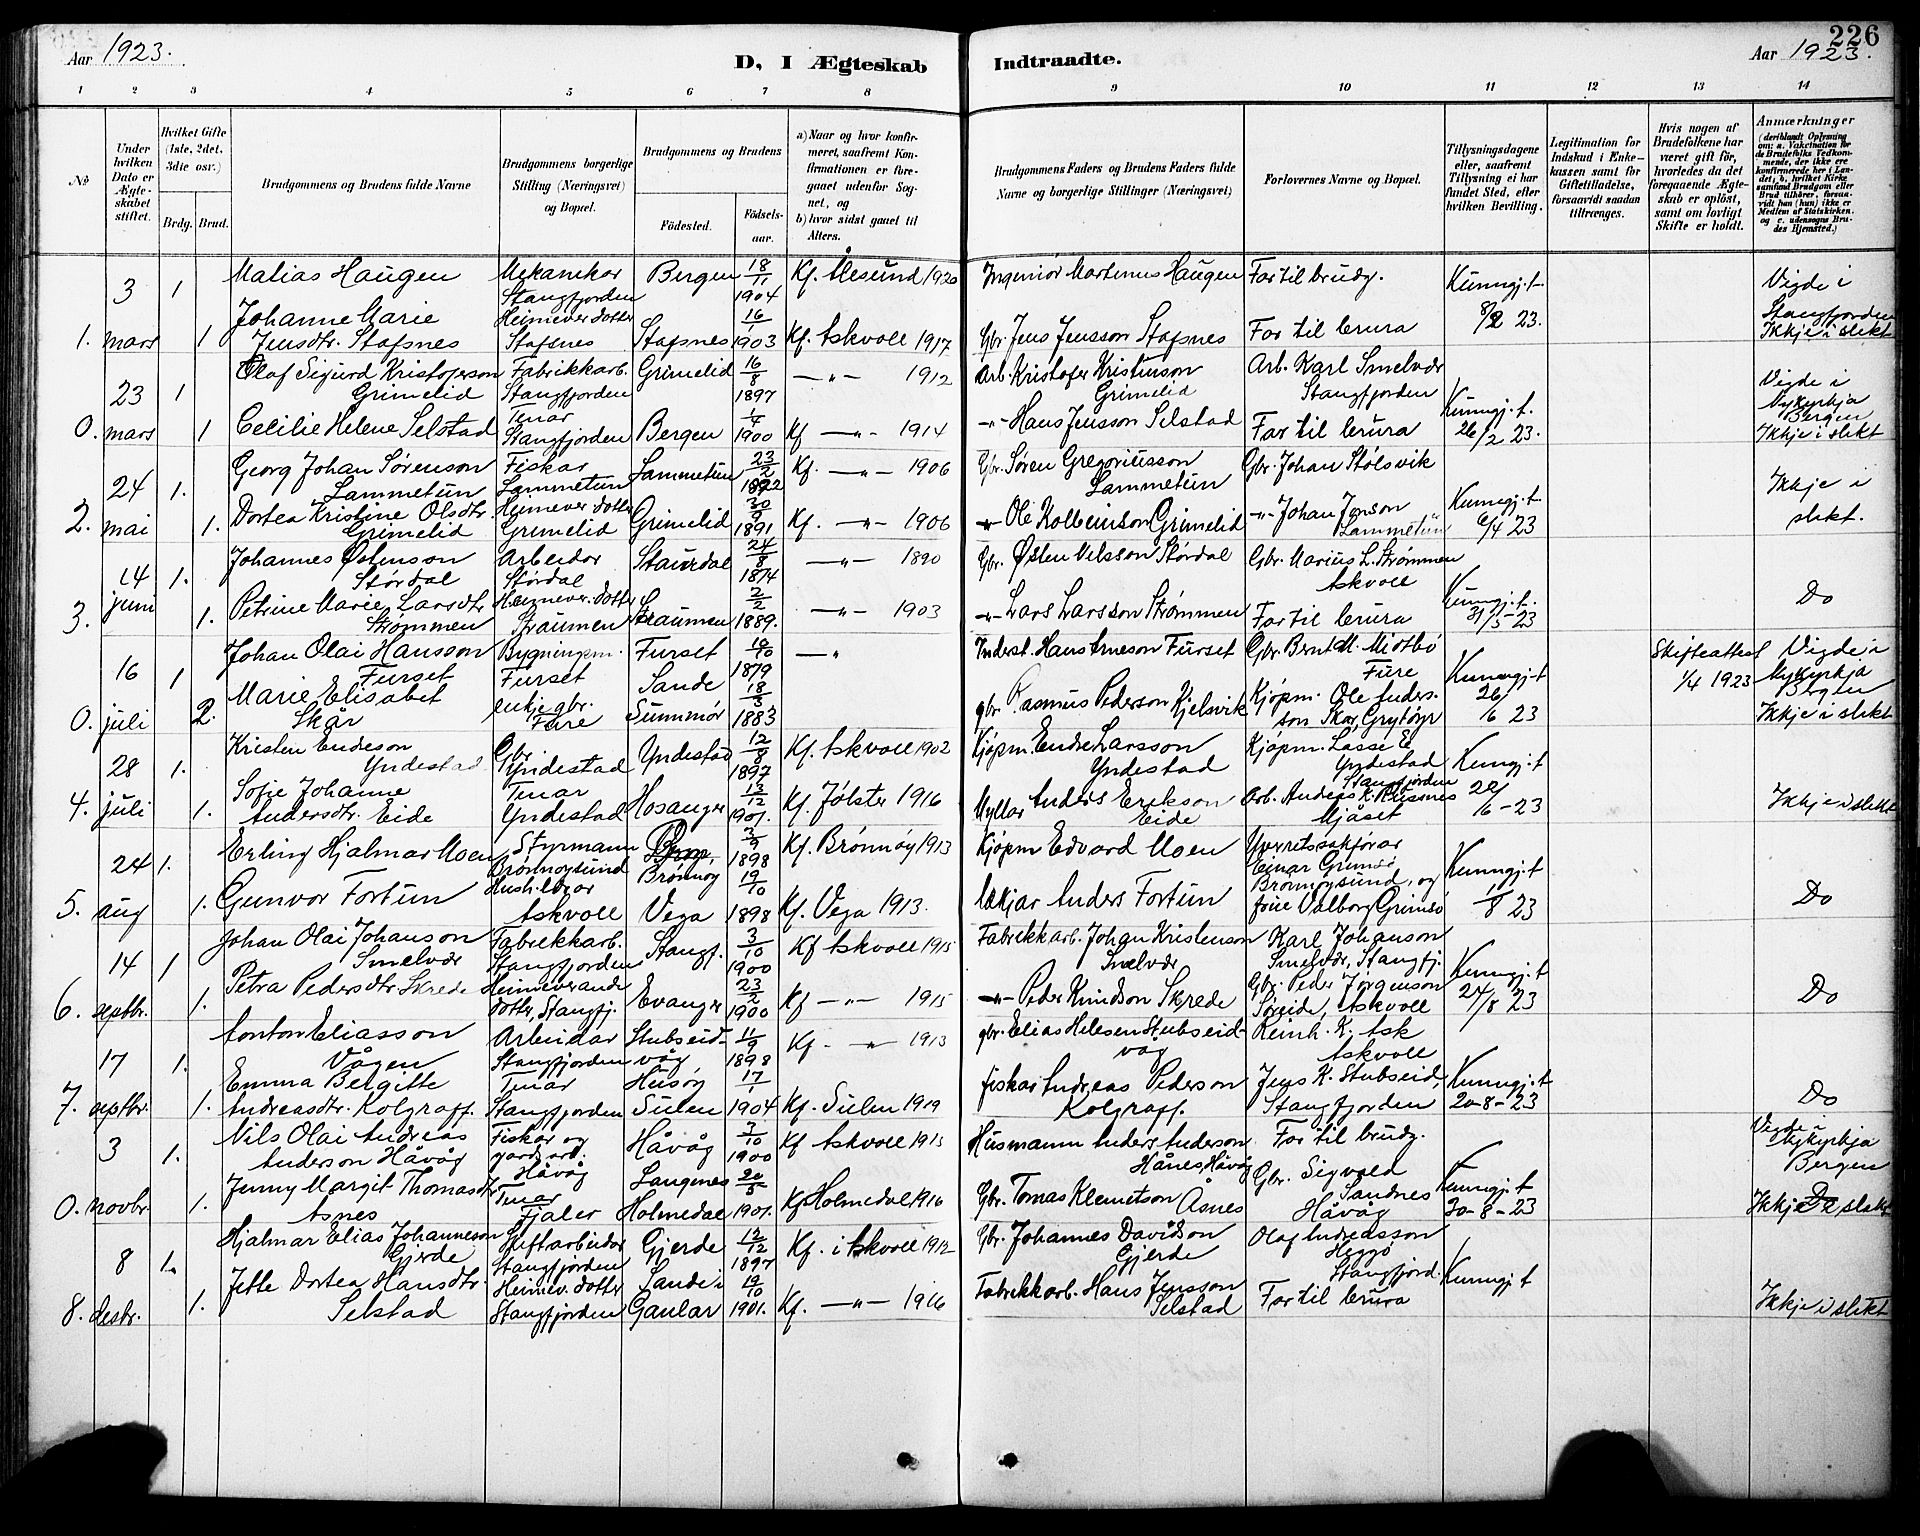 226
Aar 1923.
D, I Ægteskab Indtraadte.
Aar 1923.
1 2 3 4 5 6 7 8 9 10 11 12 13 14
No
Under hvilken Dato er Ægteskabet stiftet.
Hvilket Gifte (1ste, 2det, 3die osv.)
Brdg. Brud.
Brudgommens og Brudens fulde Navne
Brudgommens borgerlige Stilling (Næringsvei) og Bopæl.
Brudgommens og Brudens
Fødested. Fødselsaar.
a) Naar og hvor konfirmeret, saafremt Konfirmationen er foregaaet udenfor Sognet, og
b) hvor sidst gaaet til Alters.
Brudgommens Faders og Brudens Faders fulde Navne og borgerlige Stillinger (Næringsvei)
Forlovernes Navne og Bopæl.
Tillysningsdagene eller, saafremt Tillysning ei har fundet Sted, efter hvilken Bevilling.
Legitimation for Indskud i Enkekassen samt for Giftetilladelse, forsaavidt saadan tiltrænges.
Hvis nogen af Brudefolkene har været gift før, hvorledes da det foregaaende Ægteskab er opløst, samt om lovligt Skifte er holdt.
Anmærkninger
(deriblandt Oplysning om: a. Vaccination for de Brudefolks Vedkommende, der ikke ere konfirmerede her i Landet; b. hvilket Kirkesamfund Brudgom eller Brud tilhører, forsaavidt han (hun) ikke er Medlem af Statskirken, og c. udensogns Brudes Hjemsted.)
1. 3 mars 1 Malias Haugen Mekanikar Stangfjorden Bergen 18/11 1904 Kf. Ålesund 1920 Ingeniør Martenus Haugen Far til brudg. Kunngj.t 8/2 23. Vigde i Stangfjorden Ikkje i slekt
1 Johanne Marie Jensdtr. Stafsnes Heimever. dotter Stafsnes Stafsnes 16/1 1903 Kf. Askvoll 1917 Gbr. Jens Jensson Stafsnes Far til brura
0. 23 mars 1 Olaf Sigurd Kristoferson Grimelid Fabrikkarb. Stangfjorden Grimelid 16/8 1897 —"— 1912 Arb. Kristofer Kristenson Grimelid Arb. Karl Smelvær Stangfjorden Kunngj.t. 26/2 23. Vigde i Nykyrkja Bergen Ikkje i slekt
1 Cecilie Helene Selstad Tenar Stangfjorden Bergen 1/4 1900 Kf —"— 1914 —"— Hans Jensson Selstad Far til brura
2. 24 mai 1. Georg Johan Sørenson Lammetun Fiskar Lammetun Lammetun 23/2 1892 Kf. —"— 1906 Gbr. Søren Gregoriusson Lammetun Gbr. Johan Stølsvik Kunngj.t 6/4 23 Ikkje i slekt.
1. Dortea Kristine Olsdtr. Grimelid Heimever. dotter Grimelid Grimelid 30/9 1891 Kf. —"— 1906 —"— Ole Kolbeinson Grimelid —"— Johan Jenson Lammetun
3. 14 juni 1. Johannes Østenson Størdal Arbeidar Størdal Staurdal 24/8 1874 —"— 1890 Gbr. Østen Nilsson Størdal Gbr. Marius L. Strømmen Askvoll Kunngj.t. 31/5-23 Do
1. Petrine Marie Larsdtr Strømmen Heimever. dotter Straumen Straumen 2/2 1889. —"— 1903 —"— Lars Larsson Strømmen Far til brura
0. 16 juli 1 Johan Olai Hansson Furset Bygningsm. Furset Furset 19/10 1879 —"— Inderst. Hans Arneson Furset Gbr. Bernt M. Midtbø Fure Kunngj.t 26/6 23 Skifteattest 1/4 1923 Vigde i Nykyrkja Bergen Ikkje i slekt
2. Marie Elisabet Skår enkje gbr. Fure Sande Sunnmør 18/3 1883 gbr. Rasmus Pederson Kjelsvik Kjøpm. Ole Anderson Skår, Gryt
4. 28 juli 1. Kristen Endeson Yndestad Gbr. Yndestad Yndestad 12/8 1897 Kf. Askvoll 1902 Kjøpm. Endre Larsson Yndestad Kjøpm. Lasse E Yndestad Stangfjorden Kunngj.t 22/6-23 Ikkje i slekt
1. Sofie Johanne Andersdtr. Eide Tenar Yndestad Hosanger 13/12 1901. Kf. Jølster 1916 Myllar Anders Erikson Eide Arb. Anders K.
5. 24 aug 1. Erling Hjalmar Moen Styrmann Brønnøysund Brønnøy 3/9 1898 Kf. Brønnøy 1913 Kjøpm Edvard Moen Yverrettssakførar Einar Grimsø Brønnøysund, og frue Valborg Grimsø Kunngj.t 1/8 23 Do
1. Gunvor Fortun Hush.lærar Askvoll Vega 19/10 1898 Kf. Vega 1913. Lækjar Anders Fortun
6. 14 septbr. 1 Johan Olai Johanson Smelvær Fabrikkarb. Stangfjorden Stangf. 3/10 1900 Kf Askvoll 1915 Fabrikkarb. Johan Kristenson Smelvær Karl Johanson Smelvær, Stangfj. Kunngj.t 24/8 23 Do
1. Petra Pedersdtr Skrede Heimeverande dotter, Stangfj. Evanger 23/2 1900 Kf —"— 1915 —"— Peder Knudson Skrede Gbr. Peder Jørgenson Søreide, Askvoll
7. 17 septbr. 1. Anton Eliasson Vågen Arbeidar Stangfjorden Stubseidvåg 11/9 1898 Kf —"— 1913 gbr. Elias Nilesen Stubseidvåg Reinh. K. Ask Askvoll Kunngj.t 20-8-23 Do
1. Emma Bergitte Andreasdtr. Kolgraff. Tenar Stangfjorden Husøy Sulen 17/1 1904 Kf. Sulen 1919 fiskar Andreas Pederson Kolgraff. Jens K. Stubseid, Stangfjorden
0. 3 novbr. 1. Nils Olai Andreas Anderson Håvåg Fiskar og gardsarb. Håvåg Håvåg 3/10 1900 Kf Askvoll 1915 Husmann Anders Anderson Hånes Håvåg Far til brudg. Kunngj.t 30-8-23 Vigde i Nykyrkja Bergen Ikkje i slekt
1. Jenny Margit Thomasdtr Åsnes Tenar Fjaler Langenes Holmedal 20/5 1901. Kf Holmedal 1916 Gbr. Tomas Klemetson Åsnes Gbr. Sigvald Sandnes Håvåg
8. 8 desbr. 1. Hjalmar Elias Johanneson Gjerde Skiftarbeidar Stangfjorden Gjerde 12/12 1897 Kf. i Askvoll 1912 Gbr. Johannes Davidson Gjerde Olaf Andreasson Heggø Stangfjord. Kunngj.t Ikkje i slekt
1. Jette Dortea Hansdtr. Selstad Heimev. dotter Stangfjorden Sande i Gaular 19/10 1901. Kf. —"— 1916 Fabrikkarb. Hans Jensson Selstad Far til brura